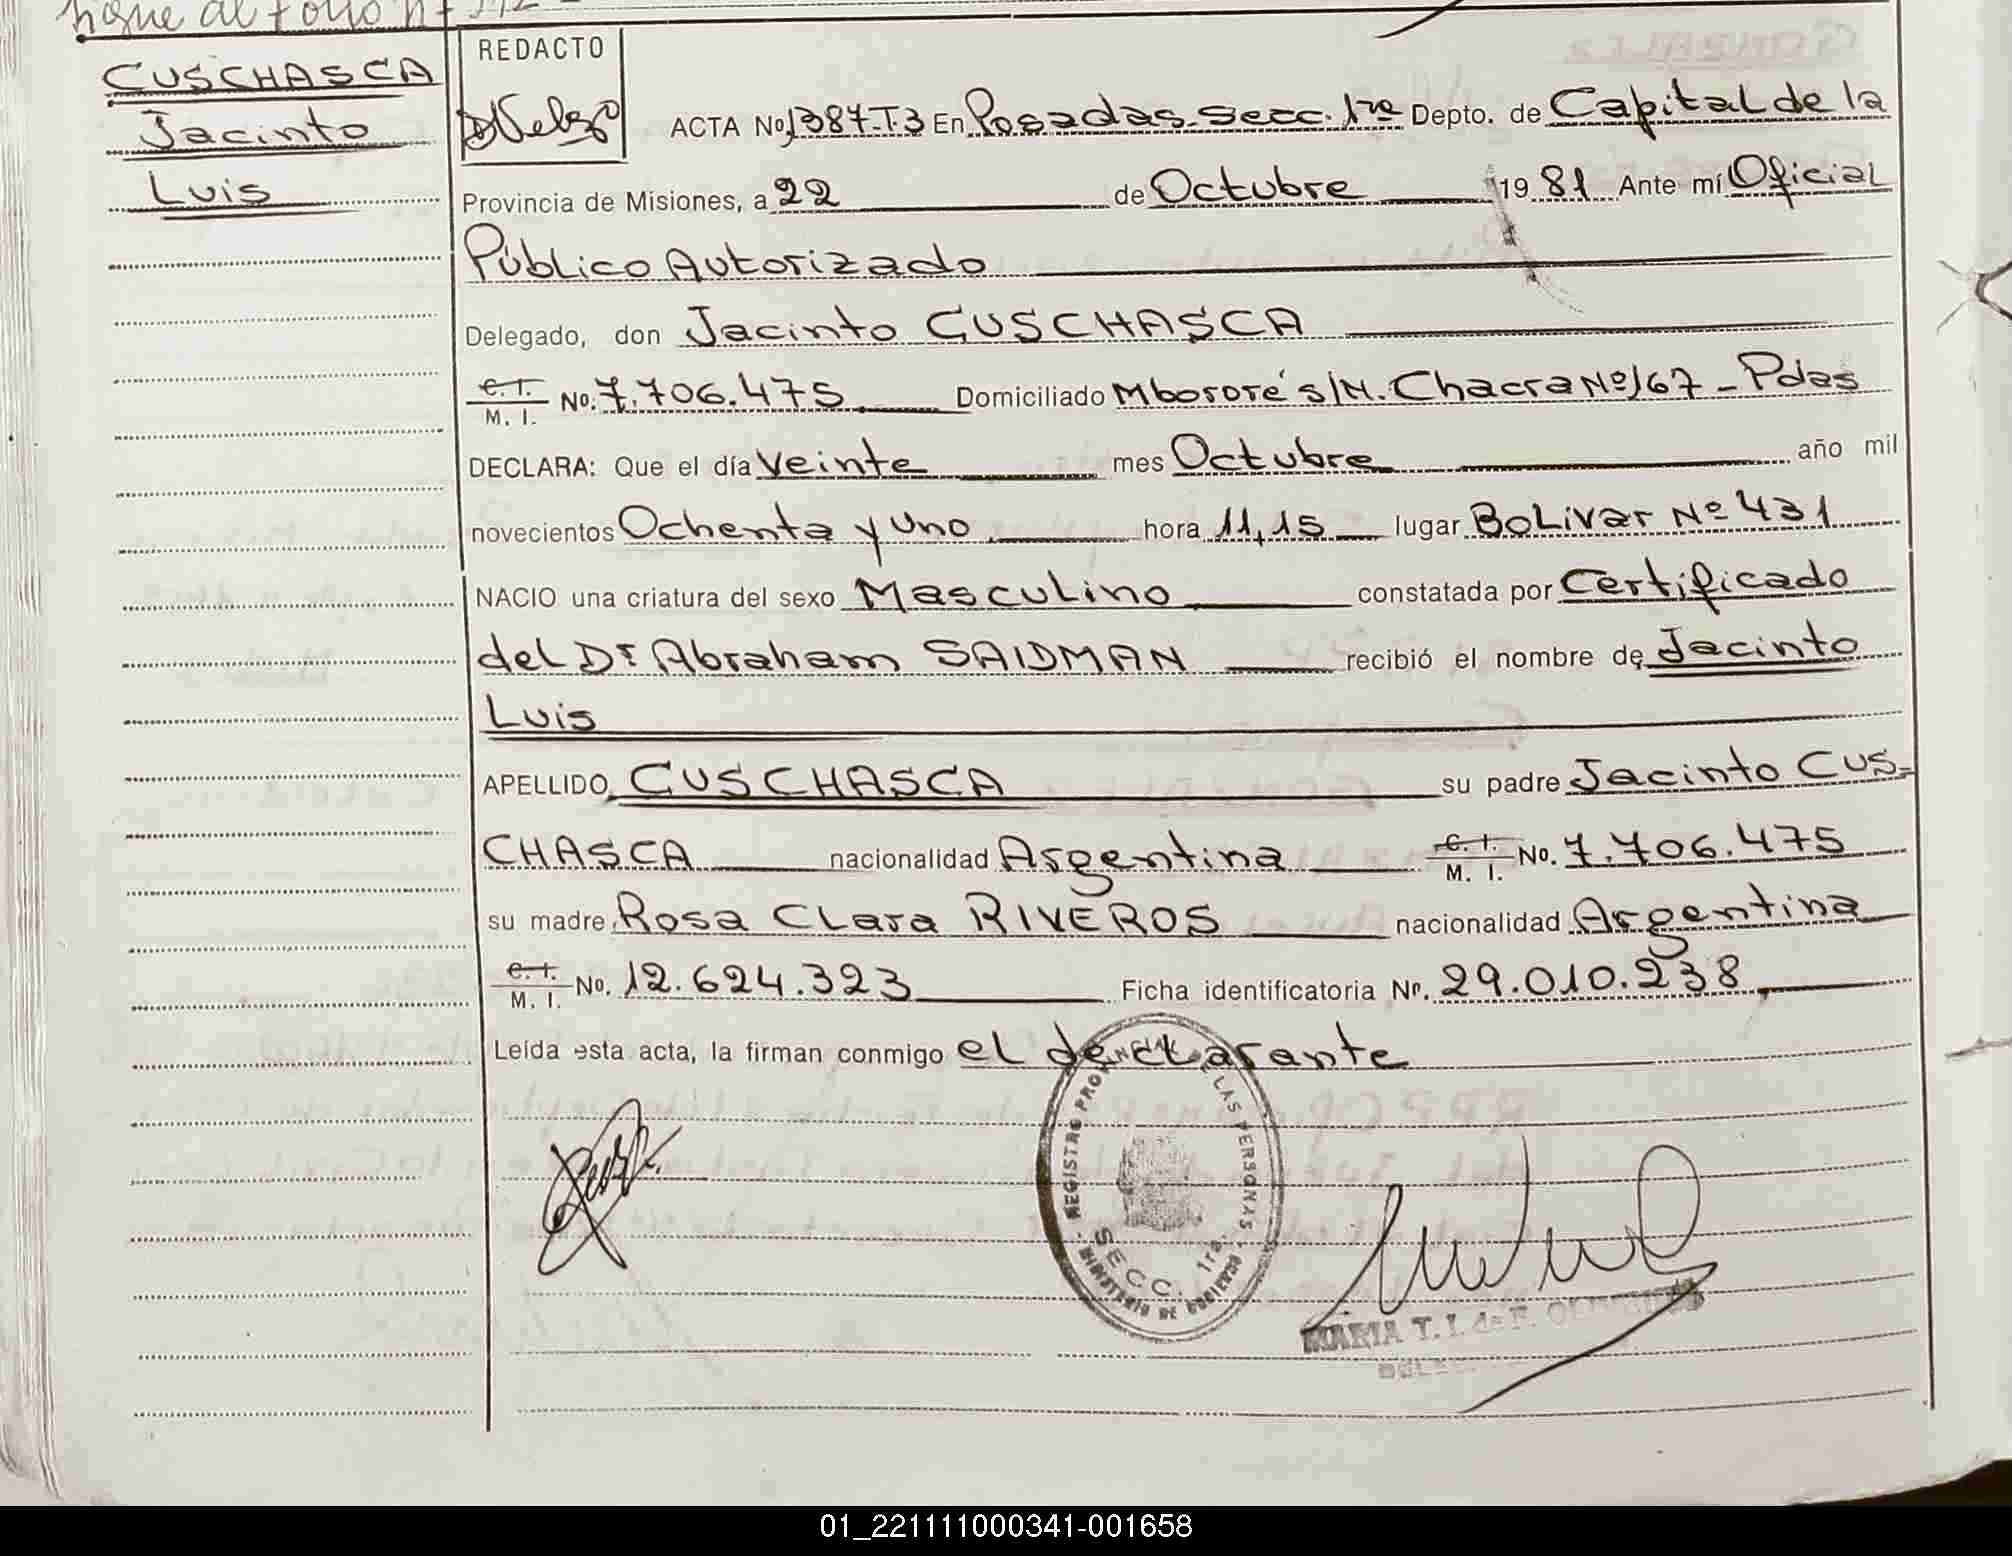 sigue al folio nº 192
CUSCHASCA
Jacinto
Luis
REDACTO
ACTA No 1387-T.3 En Posadas-Secc. 1ra Depto. de Capital de la
Provincia de Misiones, a 22 de Octubre 19 81 Ante mí Oficial
Público Autorizado
Delegado, don Jacinto CUSCHASCA
C. I.
M. I. No. 7.706.475 Domiciliado Mbororé s/N. Chacra Nº 167 - Pdas
DECLARA: Que el día veinte mes Octubre año mil
novecientos Ochenta y uno hora 11,15 lugar BoLivar Nº 431
NACIO una criatura del sexo Masculino constatada por Certificado
del Dr. Abraham SAIDMAN recibió el nombre de Jacinto
Luis
APELLIDO CUSCHASCA su padre Jacinto CUS-
CHASCA nacionalidad Argentina C. I.
M. I. No. 7.706.475
su madre Rosa Clara RIVEROS nacionalidad Argentina
C. I.
M. I. No. 12.624.323 Ficha identificatoria Nº. 29.010.238
Leída esta acta, la firman conmigo el declarante
REGISTRO PROVINCIAL DE LAS PERSONAS
SECC. 1ra.
MINISTERIO DE GOBIERNO
MARIA T. I. de F.
01_221111000341-001658